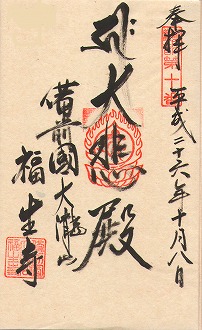 奉拝 平成二十六年十月八日
大悲殿
備前國大瀧山
福生寺